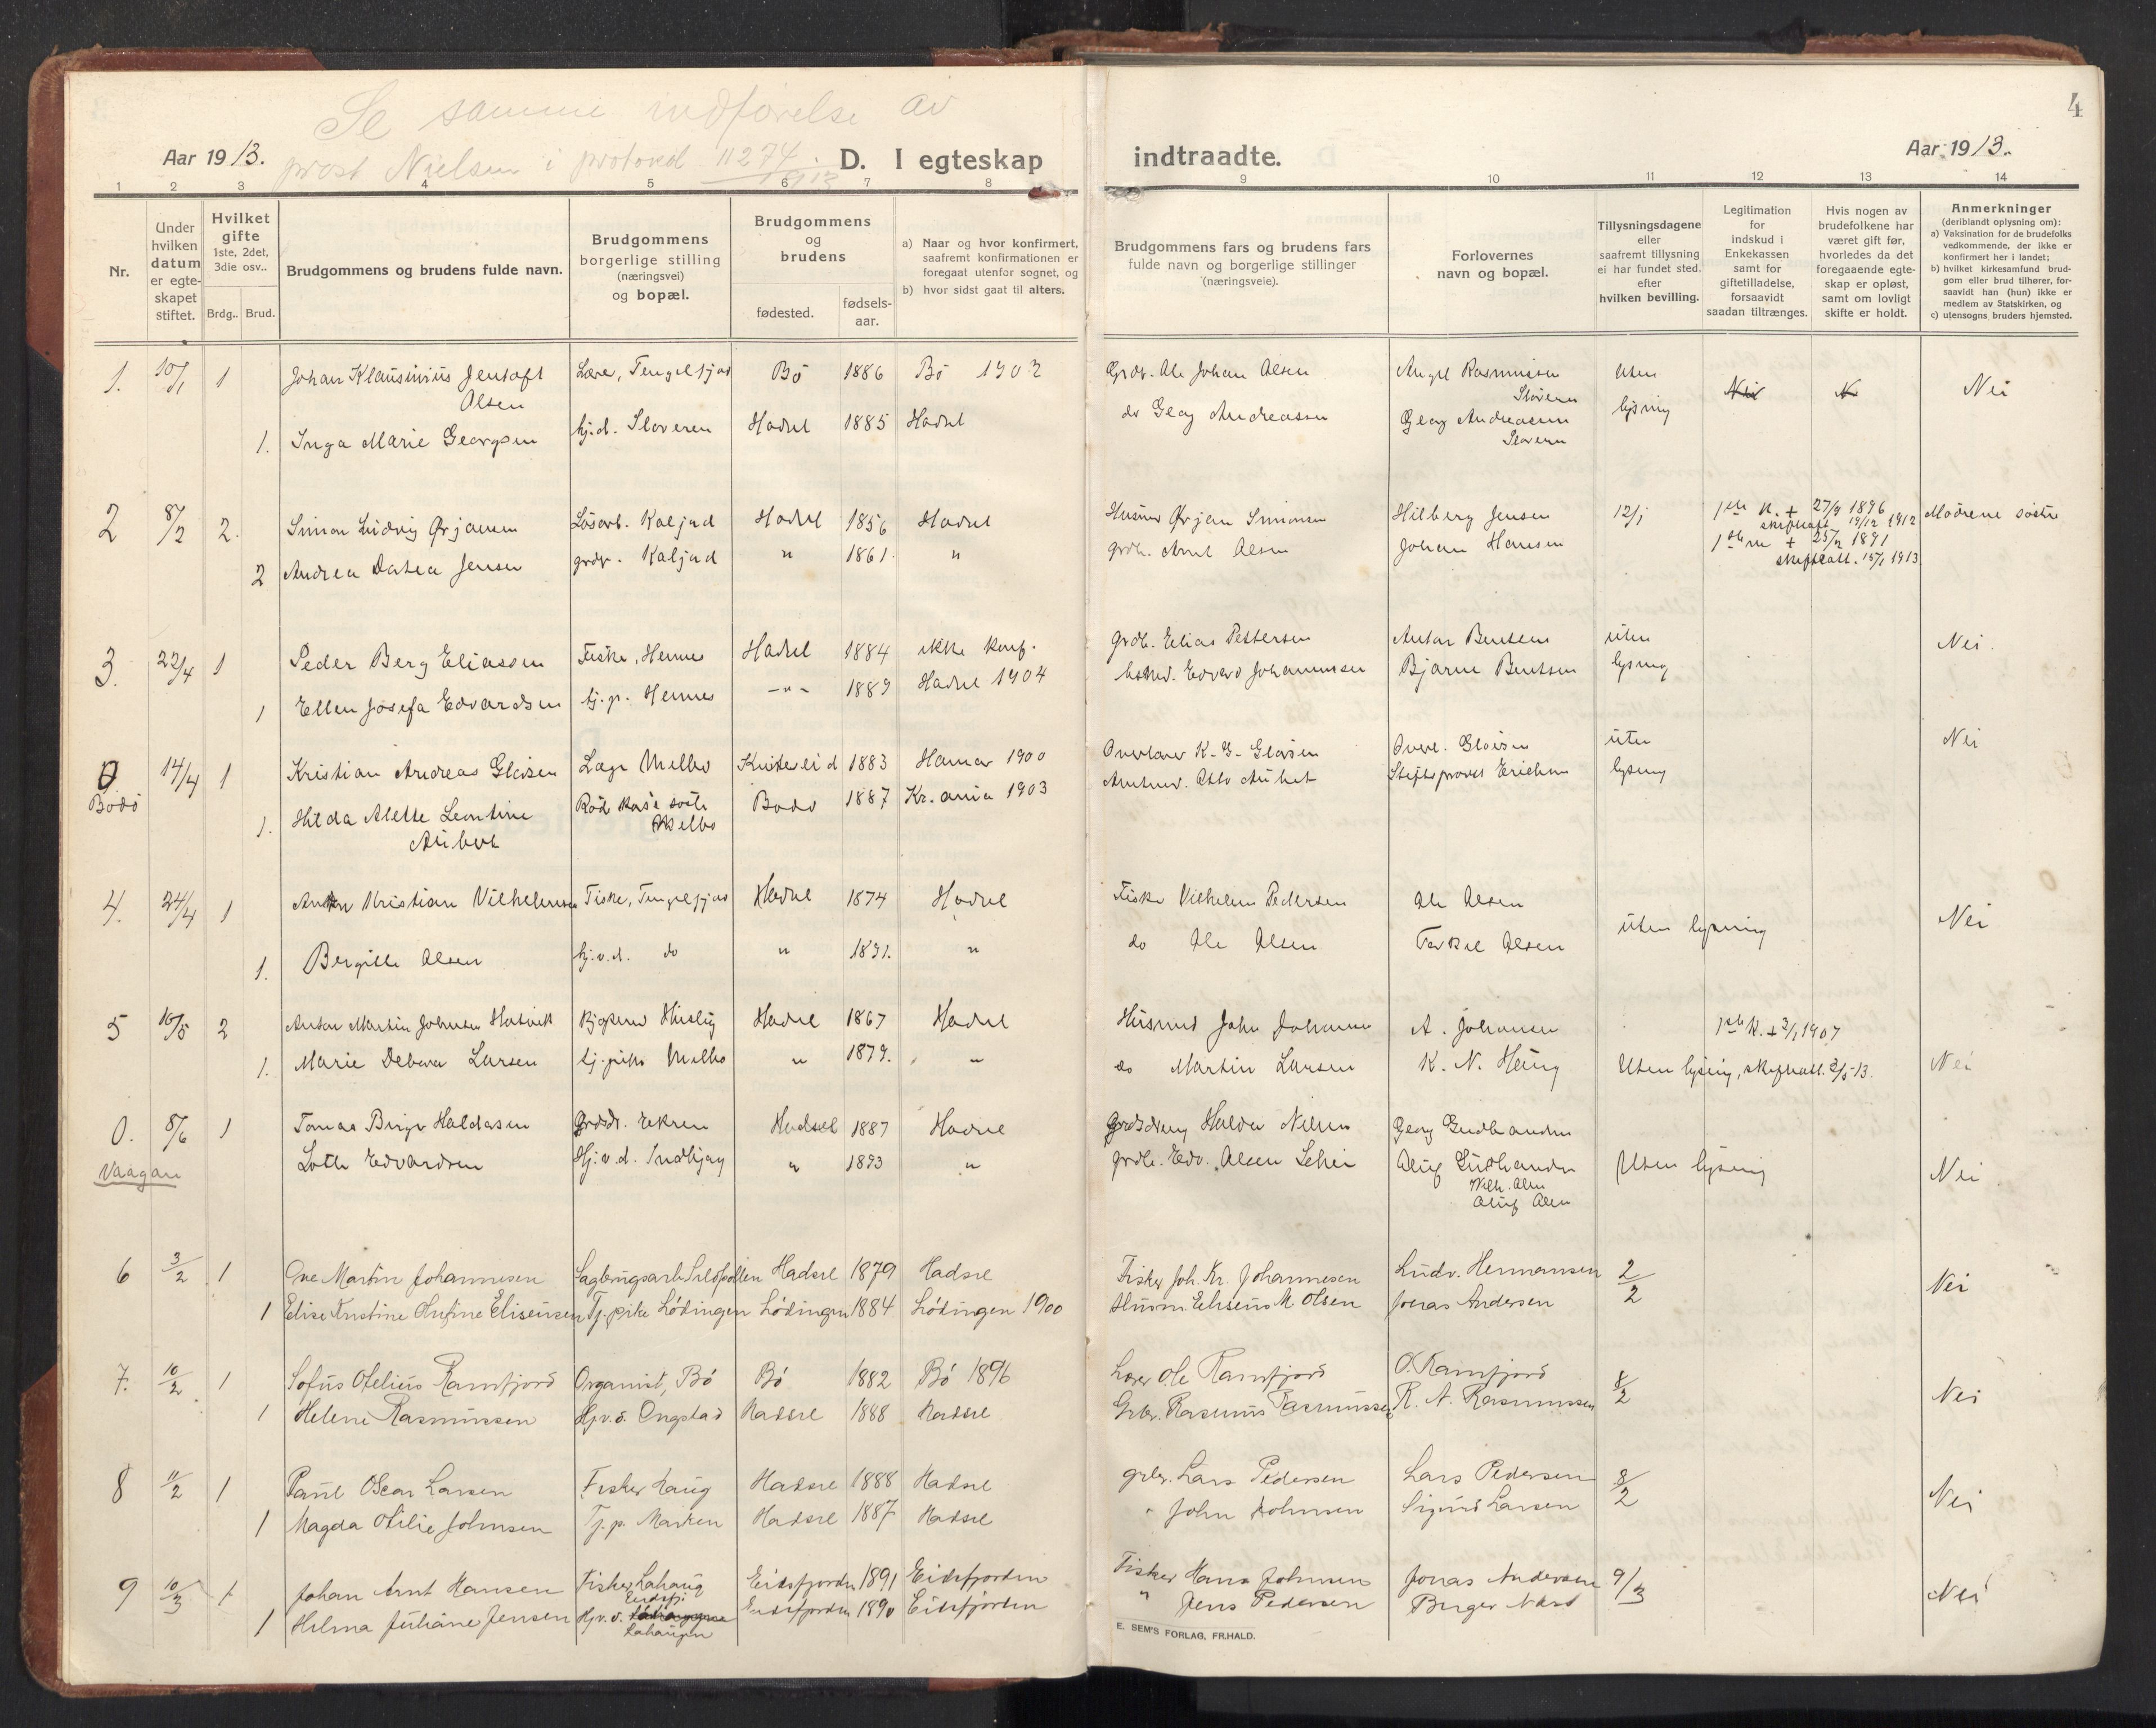 Se samme indførelse av
prost Nielsen i protokol 11274. 1913
Aar 1913.
D. I egteskap
indtraadte.
Aar 1913.
4
1 2 3 4 5 6 7 8 9 10 11 12 13 14
Nr.
Under hvilken datum er egteskapet stiftet.
Hvilket gifte 1ste, 2det, 3die osv..
Brdg.. Brud.
Brudgommens og brudens fulde navn.
Brudgommens borgerlige stilling (næringsvei) og bopæl.
Brudgommens og brudens
fødested.
fødsels-aar.
a) Naar og hvor konfirmert, saafremt konfirmationen er foregaat utenfor sognet, og
b) hvor sidst gaat til alters.
Brudgommens fars og brudens fars fulde navn og borgerlige stillinger (næringsveie).
Forlovernes navn og bopæl.
Tillysningsdagene eller saafremt tillysning ei har fundet sted. efter hvilken bevilling.
Legitimation for indskud i Enkekassen samt for giftetilladelse, forsaavidt saadan tiltrænges.
Hvis nogen av brudefolkene har været gift før, hvorledes da det foregaaende egteskap er opløst, samt om lovligt skifte er holdt.
Anmerkninger
(deriblandt oplysning om):
a) Vaksination for de brudefolks vedkommende, der ikke er konfirmert her i landet;
b) hvilket kirkesamfund brudgom eller brud tilhører, forsaavidt han (hun) ikke er medlem av Statskirken, og
c) utensogns bruders hjemsted.
1. 10/1 1 Johan Klausinius Jentoft Olsen Bø 1886 Bø 1902 Grdbr. Ole Johan Olsen Angel Rasmussen uten Nei N Nei
1. Inga Marie Georgsen hj.d. Sloveren Hadsel 1885 Hadsel do Georg Andreassen Georg Andreassen lysning
2 8/2 2. Simon Ludvig Ørjansen Løsarb. Kaljord Hadsel 1856 Hadsel Husmd Ørjan Simonsen Hilberg Jensen 12/1 1ste k. + 27/9 1896 skifteatt 19/12 1912 Mødrene søstre
2 Andrea Datea Jensen grdbr. Kaljord " 1861. " grdb. Arnt Olsen Johan Hansen 1ste m + 25/2 1891 skifteatt. 15/1 1913
3. 22/4 1 Peder Berg Eliassen Fisker, Hennes Hadsel 1884 ikke konf. grdb. Elias Pettersen Anton Bentsen uten Nei.
1 Ellen Josefa Edvardsen tj.p. Hennes -"- 1889 Hadsel 1904 Edvard Johannessen Bjarne Bentsen lysning
0 14/4 1 Kristian Andreas Glosen Læge Melbo Kviteseid 1883 Hamar 1900 Overlærer K. G. Glosen Overl. Glosen uten Nei
Bodø 1. Hilda Alette Leontine Røde kors søster Melbo Bodø 1887 Kr.ania 1903 Stiftsprovst lysning
4. 24/4 1 Kristian Vilhelmsen Fisker, Hadsel 1874 Hadsel Fisker Vilhelm Pedersen Ole Olsen uten lysning Nei
1. Bergitte Olsen hj.v.d. do " 1891. " do Ole Olsen Torkel Olsen
5 16/5 2 Anton Martin Johnsen Hadsel 1867 Hadsel Husmd John Johansen A. Johansen 1ste k. + 3/1 1907
1. Marie Debora Larsen tj.pike Melbo " 1879. " do Martin Larsen K. N. Uten lysning, skifteatt. 2/5-13. Nei
0. 8/6 1 Tomas Birger Haldorsen Hadsel 1887 Hadsel Haldor Nilsen Georg
Vaagan Lotte Edvardsen Hj.v.d. Indbjerg " 1893 " grdb. Edv. Olsen Schei Uten lysning Nei
Vilh. Olsen
Oluf Olsen
6 3/2 1 Ove Martin Johannesen Sagbrugsarb. Sildpollen Hadsel 1879 Hadsel Fisker Joh. Kr. Johannesen Ludv. Hermansen 2/2 Nei
1 Elise Kristine Olufine Eliseusen Tj. pike Lødingen Lødingen 1884 Lødingen 1900 Husm. Eliseus M. Olsen Jonas Andersen
7. 10/2 1 Sofus Otelius Ramfjord Organist, Bø Bø 1882 Bø 1896 Lærer Ole Ramfjord O. Ramfjord 8/2 Nei
1 Helene Rasmussen Hj.v.d. Ongstad Hadsel 1888 Hadsel Grbr. Rasmus Rasmussen R. A. Rasmussen
8 11/2 1 Paul Oscar Larsen Fisker Haug Hadsel 1888 Hadsel grbr. Lars Pedersen Lars Pedersen 8/2 Nei
1 Magda Otilie Johnsen Tj. p. Marken Hadsel 1887 Hadsel " John Johnsen Sigurd Larsen
9 10/3 1 Johan Arnt Hansen Fisker Lahaug Eidsfj. Eidsfjorden 1891 Eidsfjorden Fisker Hans Johnsen Jonas Andersen 9/3 Nei
1 Hilma Juliane Jensen Hj.v.d. Lahaugen Eidsfjorden 1890 Eidsfjorden " Jens Pedersen Birger
E. SEM'S FORLAG, FR.HALD.